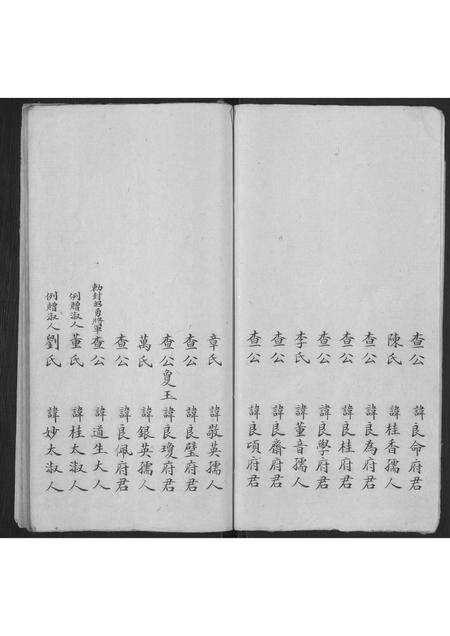 查公 諱良命府君
陳氏 諱桂香孺人
查公 諱良為府君
查公 諱良桂府君
查公 諱良學府君
李氏 諱董音孺人
查公 諱良齋府君
查公 諱良頃府君
章氏 諱敬英孺人
查公 諱良璧府君
查公夏王 諱良瓊府君
萬氏 諱銀英孺人
查公 諱良佩府君
勅封昭勇將軍查公 諱道生大人
例贈淑人董氏 諱桂太淑人
例贈淑人劉氏 諱妙太淑人